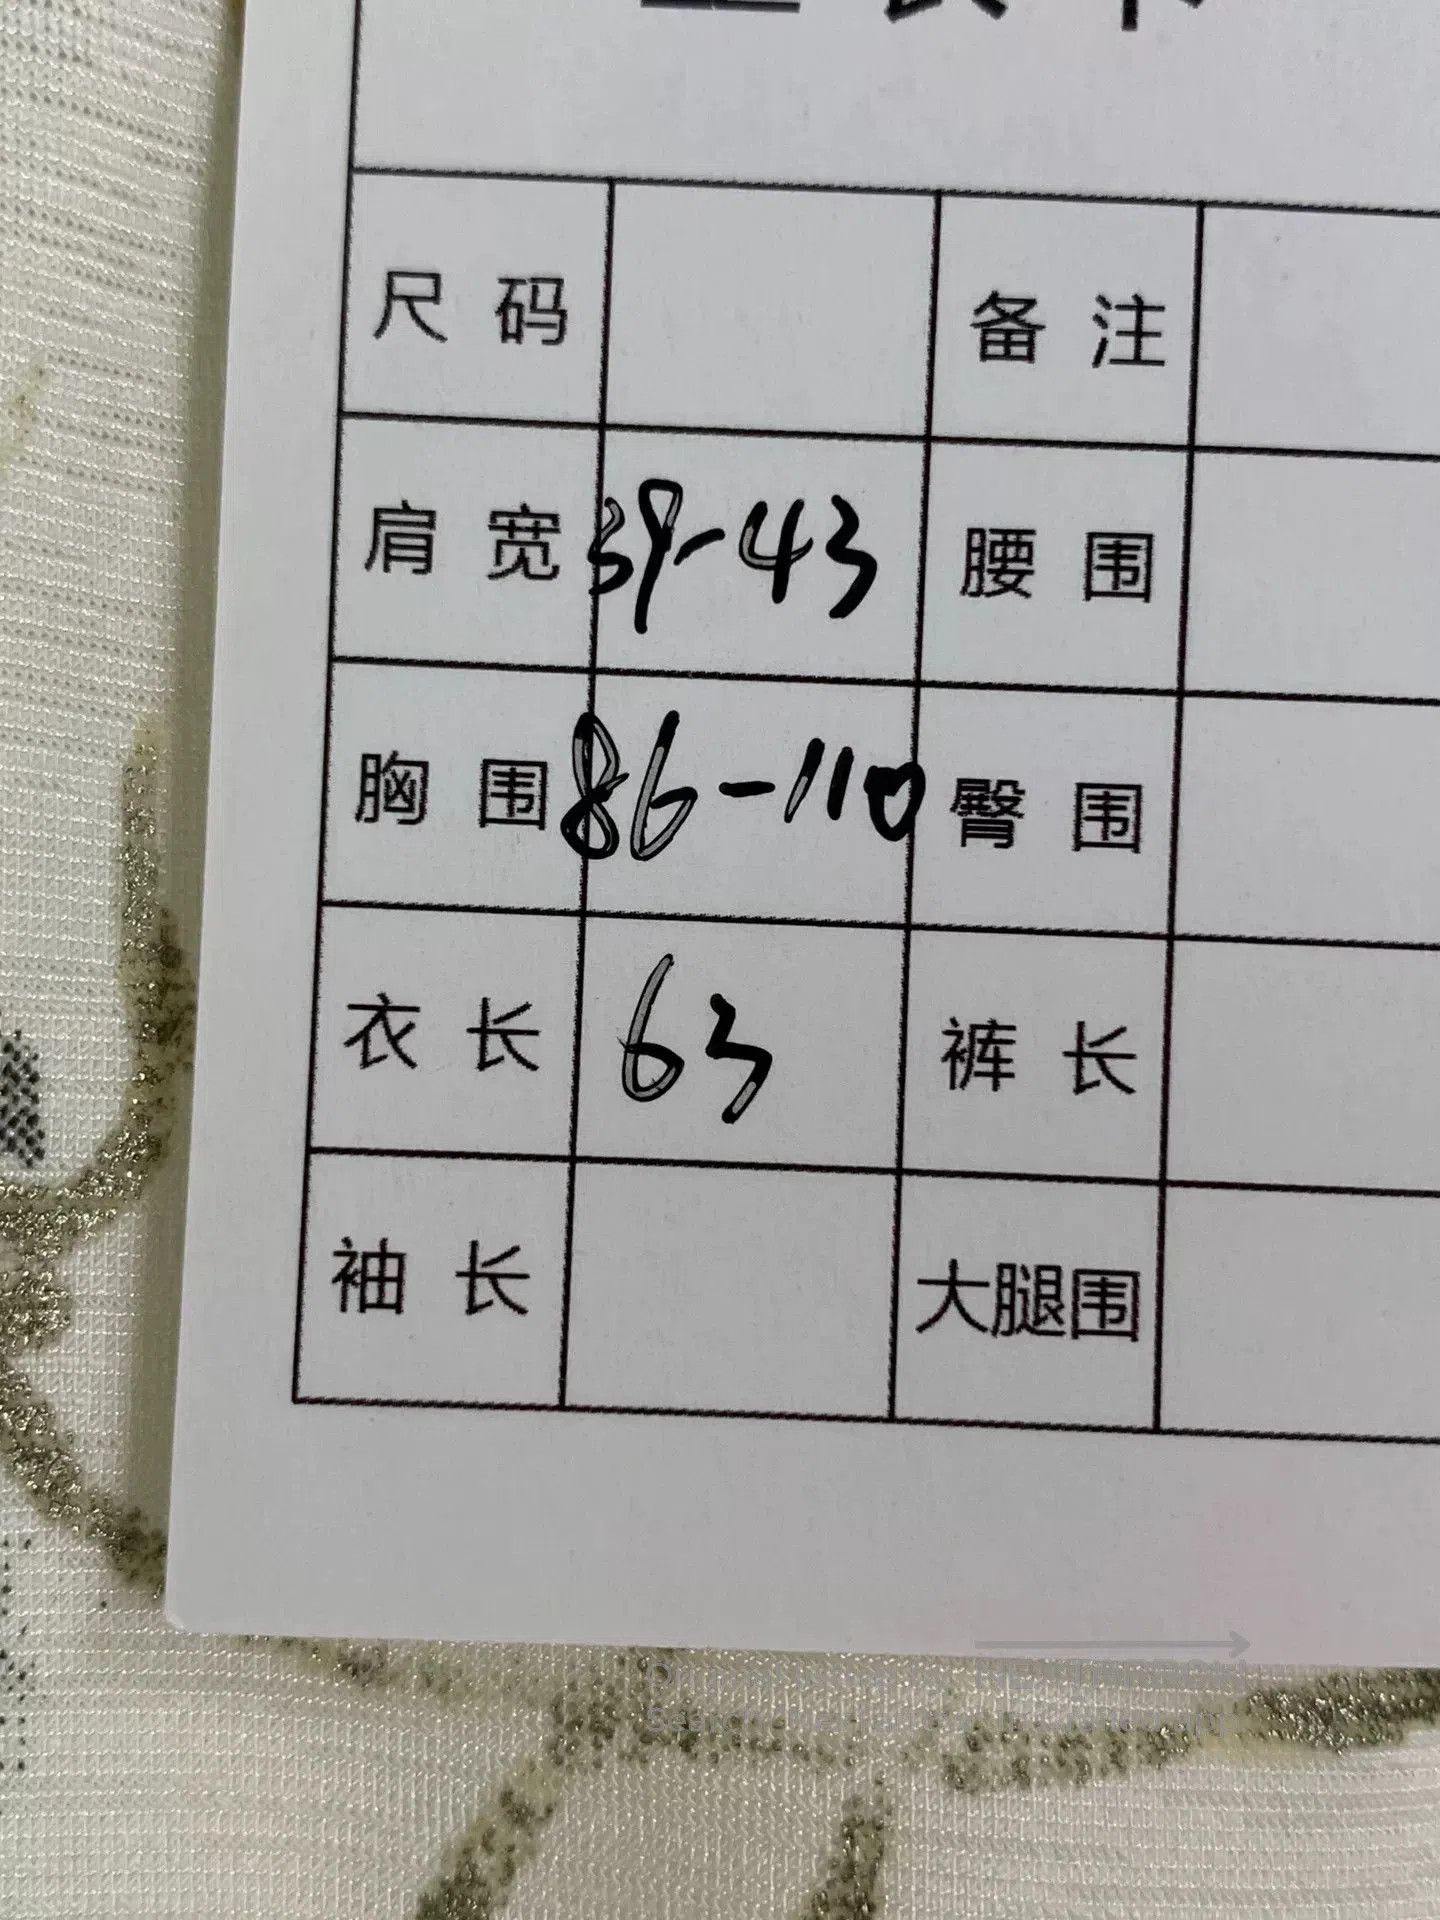 尺码 备注
肩宽 39-43 腰围
胸围 86-110 臀围
衣长 63 裤长
袖长 大腿围